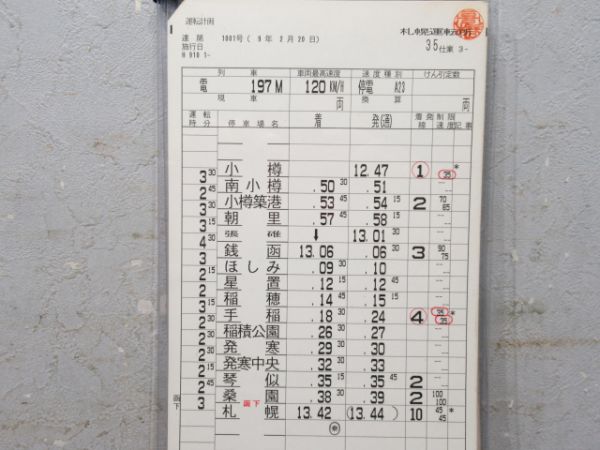 運転計画
達 関 1001号 ( 9 年 2 月 20 日 )
施行日
H 910 1-
札幌運転所
35 仕業 3-
列 車 車両最高速度 速 度 種 別 けん引定数
電 197M 120 KM/H 停電 A23
現 車 両 換 算 両
運転時分 停 車 場 名 着 発(通) 着発線 制限速度 記事
小 樽 12.47 1 35 *
3 30 南 小 樽 .50 30 .51
2 小樽築港 .53 45 .54 15 2 70 65
3 朝 里 .57 45 .58 15
3 15 張 碓 ↓ 13.01 30
4 30 銭 函 13.06 .06 30 3 90 75
2 ほしみ .09 30 .10
2 15 星 置 .12 15 .12 45
2 稲 穂 .14 45 .15 15
3 手 稲 .18 30 .24 4 35 35 *
2 30 稲積公園 .26 30 .27
2 30 発 寒 .29 30 .30
2 発寒中央 .32 30 .33
2 15 琴 似 .35 15 .35 45 2
2 45 桑 園 .38 30 .39 2 100 100
函下 3 函下 札 幌 13.42 (13.44 ) 10 45 45 *